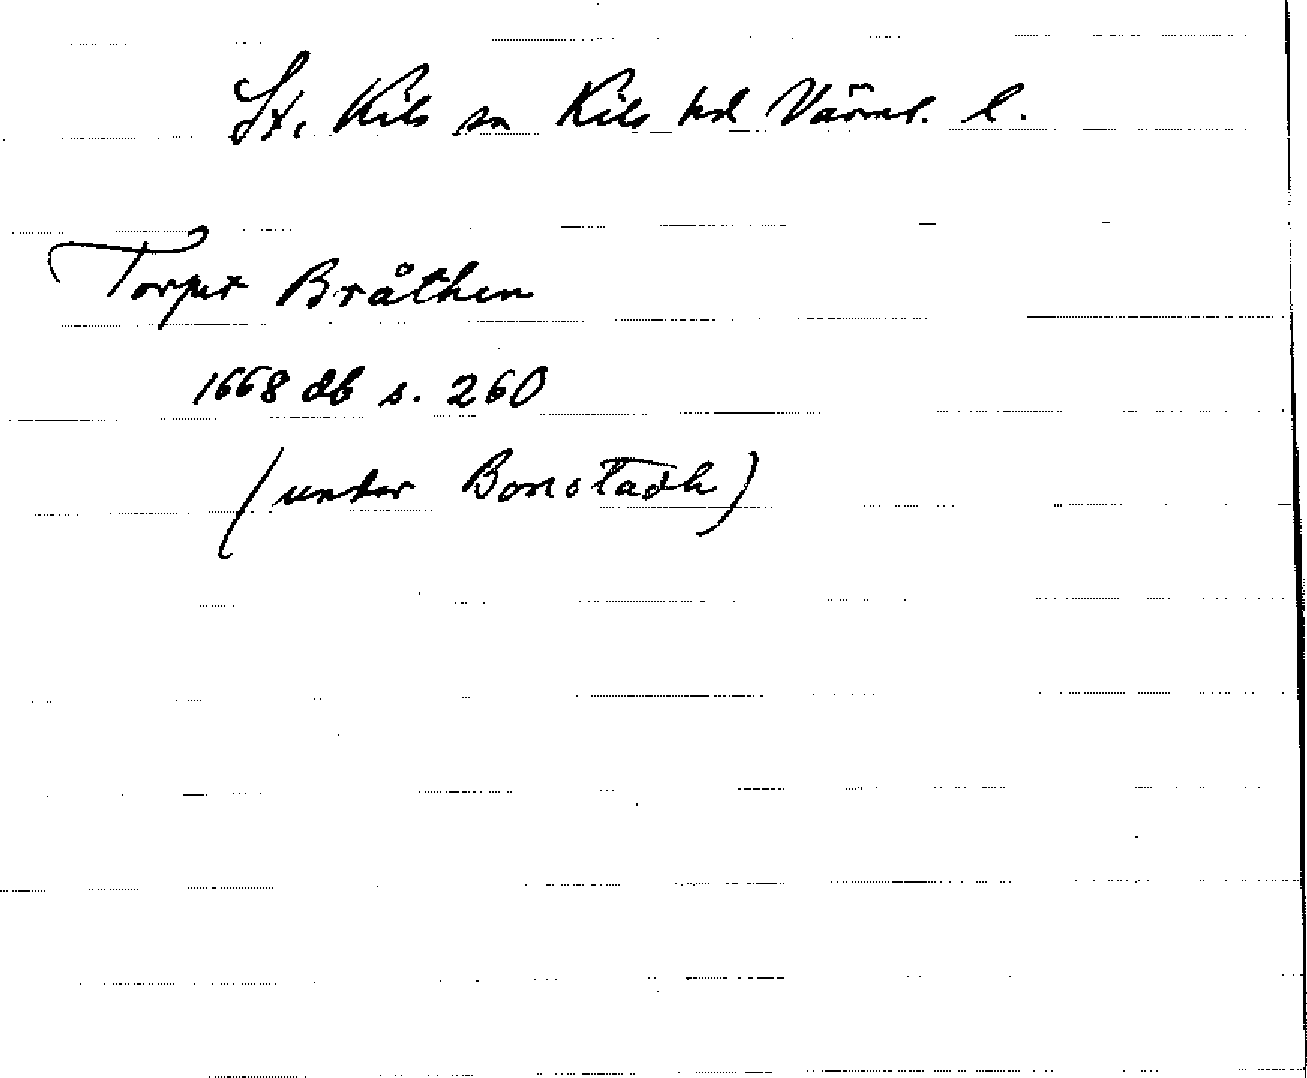 St. Kils sn Kils hd Värml. l.
Torpet Bråthen
1668 db s. 260
(under Bonstadh)